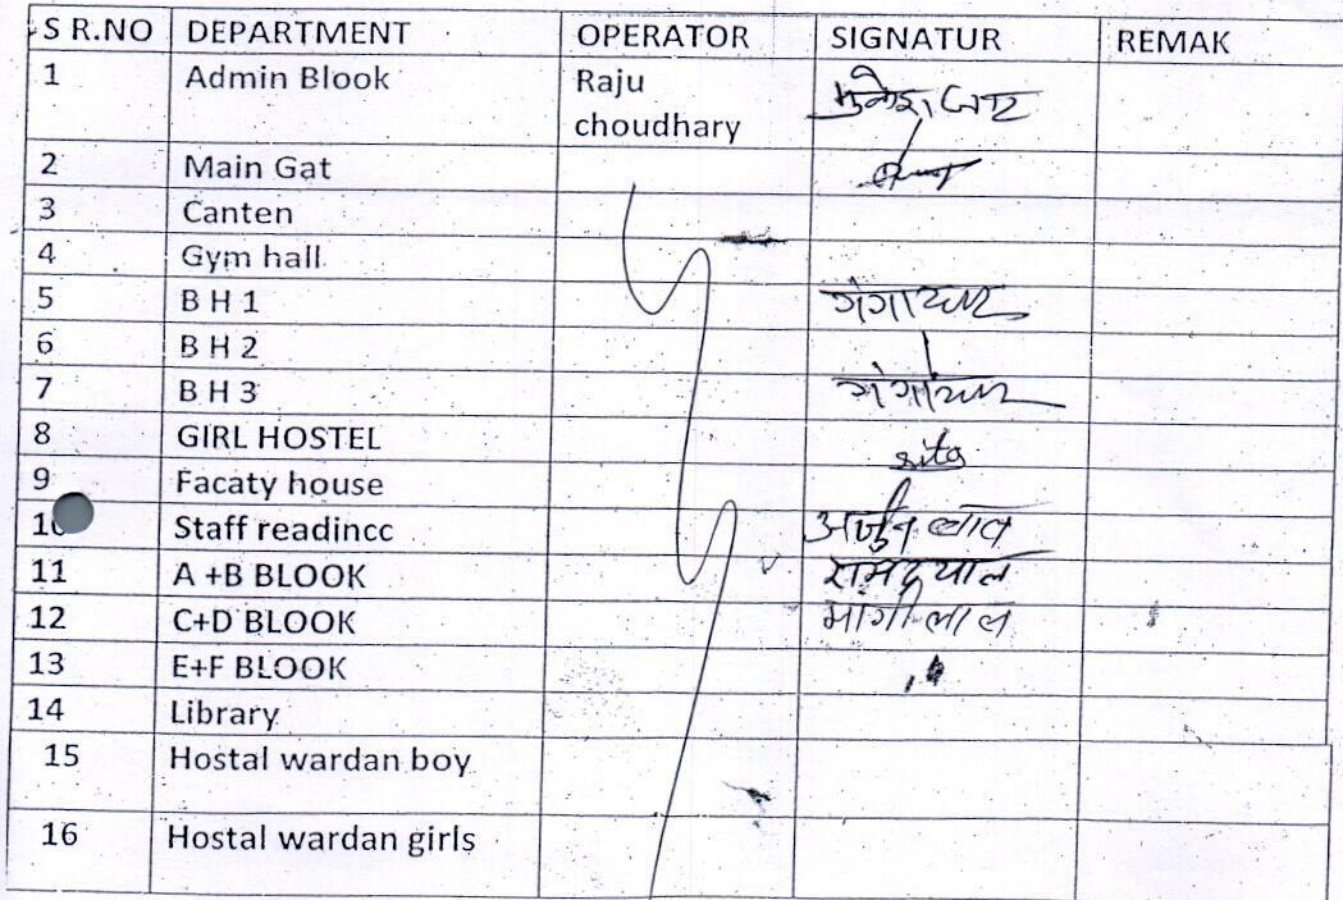 S R.NO DEPARTMENT OPERATOR SIGNATUR REMAK
1 Admin Blook Raju choudhary
2 Main Gat
3 Canten
4 Gym hall
5 B H 1 गंगाराम
6 B H 2
7 B H 3 गंगाराम
8 GIRL HOSTEL sita
9 Facaty house
10 Staff readincc अर्जुन लाल
11 A +B BLOOK रामदयाल
12 C+D BLOOK मांगीलाल
13 E+F BLOOK
14 Library
15 Hostal wardan boy
16 Hostal wardan girls